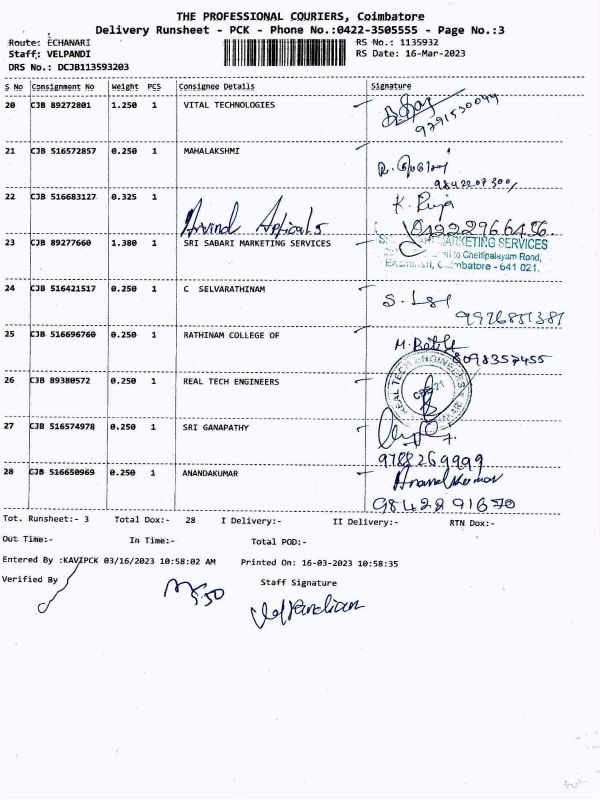 THE PROFESSIONAL COURIERS, Coimbatore
Delivery Runsheet - PCK - Phone No.:0422-3505555 - Page No.:3
Route: ECHANARI
RS No.: 1135932
Staff: VELPANDI
RS Date: 16-Mar-2023
DRS No.: DCJB113593203
S No Consignment No Weight PCS Consignee Details Signature
20 CJB 89272801 1.250 1 VITAL TECHNOLOGIES
9791530044
21 CJB 516572857 0.250 1 MAHALAKSHMI
22 CJB 516683127 0.325 1 Arvind Opticals K. Puja
23 CJB 89277660 1.380 1 SRI SABARI MARKETING SERVICES
MARKETING SERVICES
to Chettipalayam Road,
Coimbatore - 641 021.
24 CJB 516421517 0.250 1 C SELVARATHINAM
25 CJB 516696760 0.250 1 RATHINAM COLLEGE OF
8098357455
26 CJB 89380572 0.250 1 REAL TECH ENGINEERS REAL TECH ENGINEERS
27 CJB 516574978 0.250 1 SRI GANAPATHY
9788269999
28 CJB 516650969 0.250 1 ANANDKUMAR Anandkumar
9842891670
Tot. Runsheet:- 3 Total Dox:- 28 I Delivery:- II Delivery:- RTN Dox:-
Out Time:- In Time:- Total POD:-
Entered By :KAVIPCK 03/16/2023 10:58:02 AM Printed On: 16-03-2023 10:58:35
Verified By Staff Signature
Velpandian